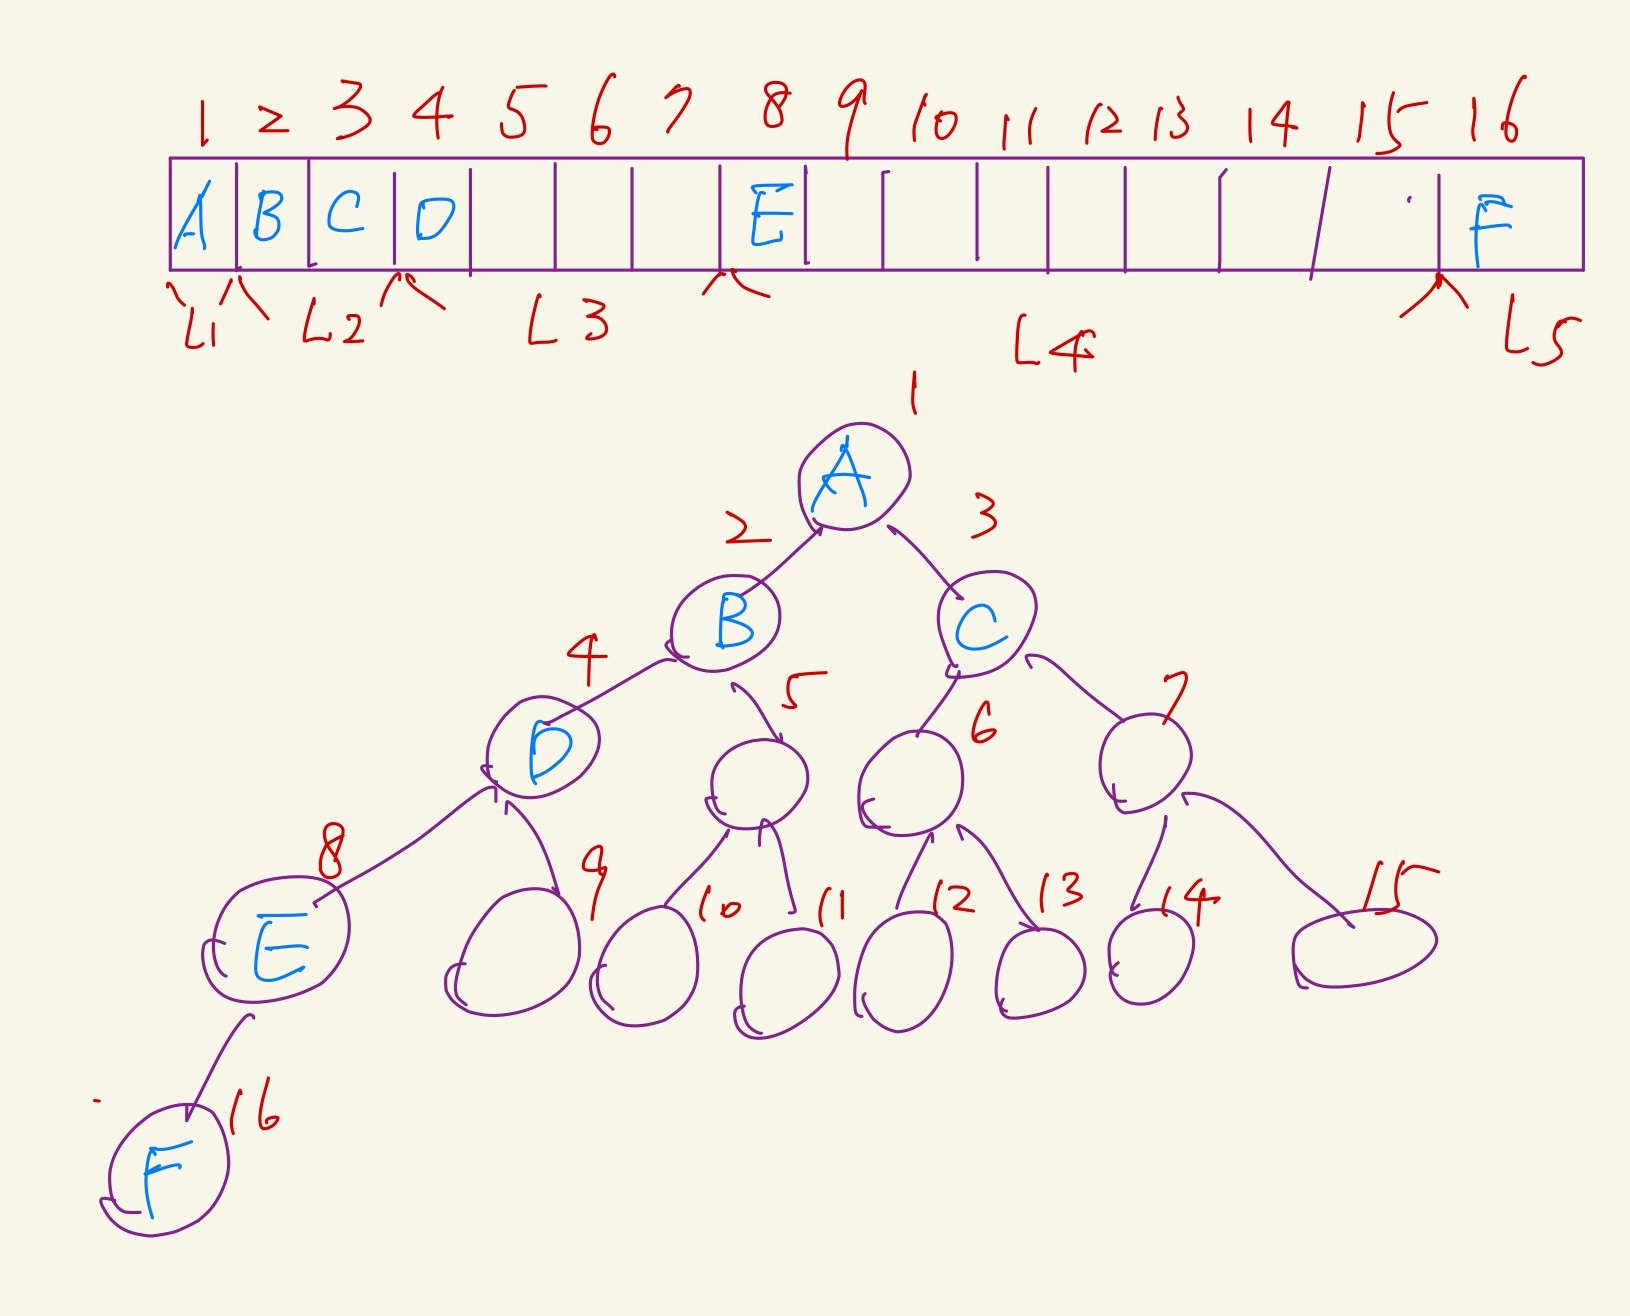 1 2 3 4 5 6 7 8 9 10 11 12 13 14 15 16
A B C D E F
L1 L2 L3 L4 L5
1
A
2 3
B C
4 5 6 7
D
8 9 10 11 12 13 14 15
E
16
F